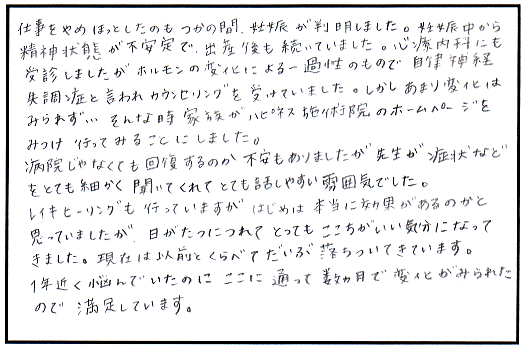 仕事をやめほっとしたのもつかの間、妊娠が判明しました。妊娠中から
精神状態が不安定で、出産後も続いていました。心療内科にも
受診しましたがホルモンの変化による一過性のもので自律神経
失調症と言われカウンセリングを受けていました。しかしあまり変化は
みられず… そんな時家族がハピネス施術院のホームページを
みつけ行ってみることにしました。
病院じゃなくても回復するのか不安もありましたが先生が症状など
をとても細かく聞いてくれてとても話しやすい雰囲気でした。
レイキヒーリングも行っていますがはじめは本当に効果があるのかと
思っていましたが、日がたつにつれてとってもここちがいい気分になって
きました。現在は以前とくらべてだいぶ落ちついてきています。
1年近く悩んでいたのにここに通って数ヵ月で変化がみられた
ので満足しています。